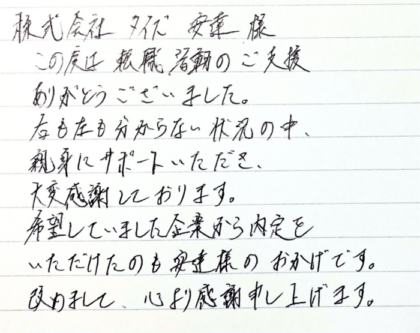 株式会社 タイズ 安達 様
この度は 転職 活動の ご支援
ありがとうございました。
右も左も分からない 状況の中、
親身に サポートいただき、
大変感謝しております。
希望していました企業から内定を
いただけたのも 安達様の おかげです。
改めまして、心より感謝申し上げます。